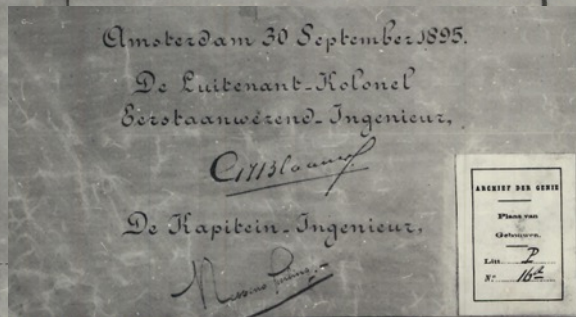 Amsterdam 30 September 1895.
De Luitenant-Kolonel
Eerstaanwezend-Ingenieur,
De Kapitein-Ingenieur,
ARCHIEF DER GENIE
Plans van
Gebouwen.
Litt. P
N°. 16d